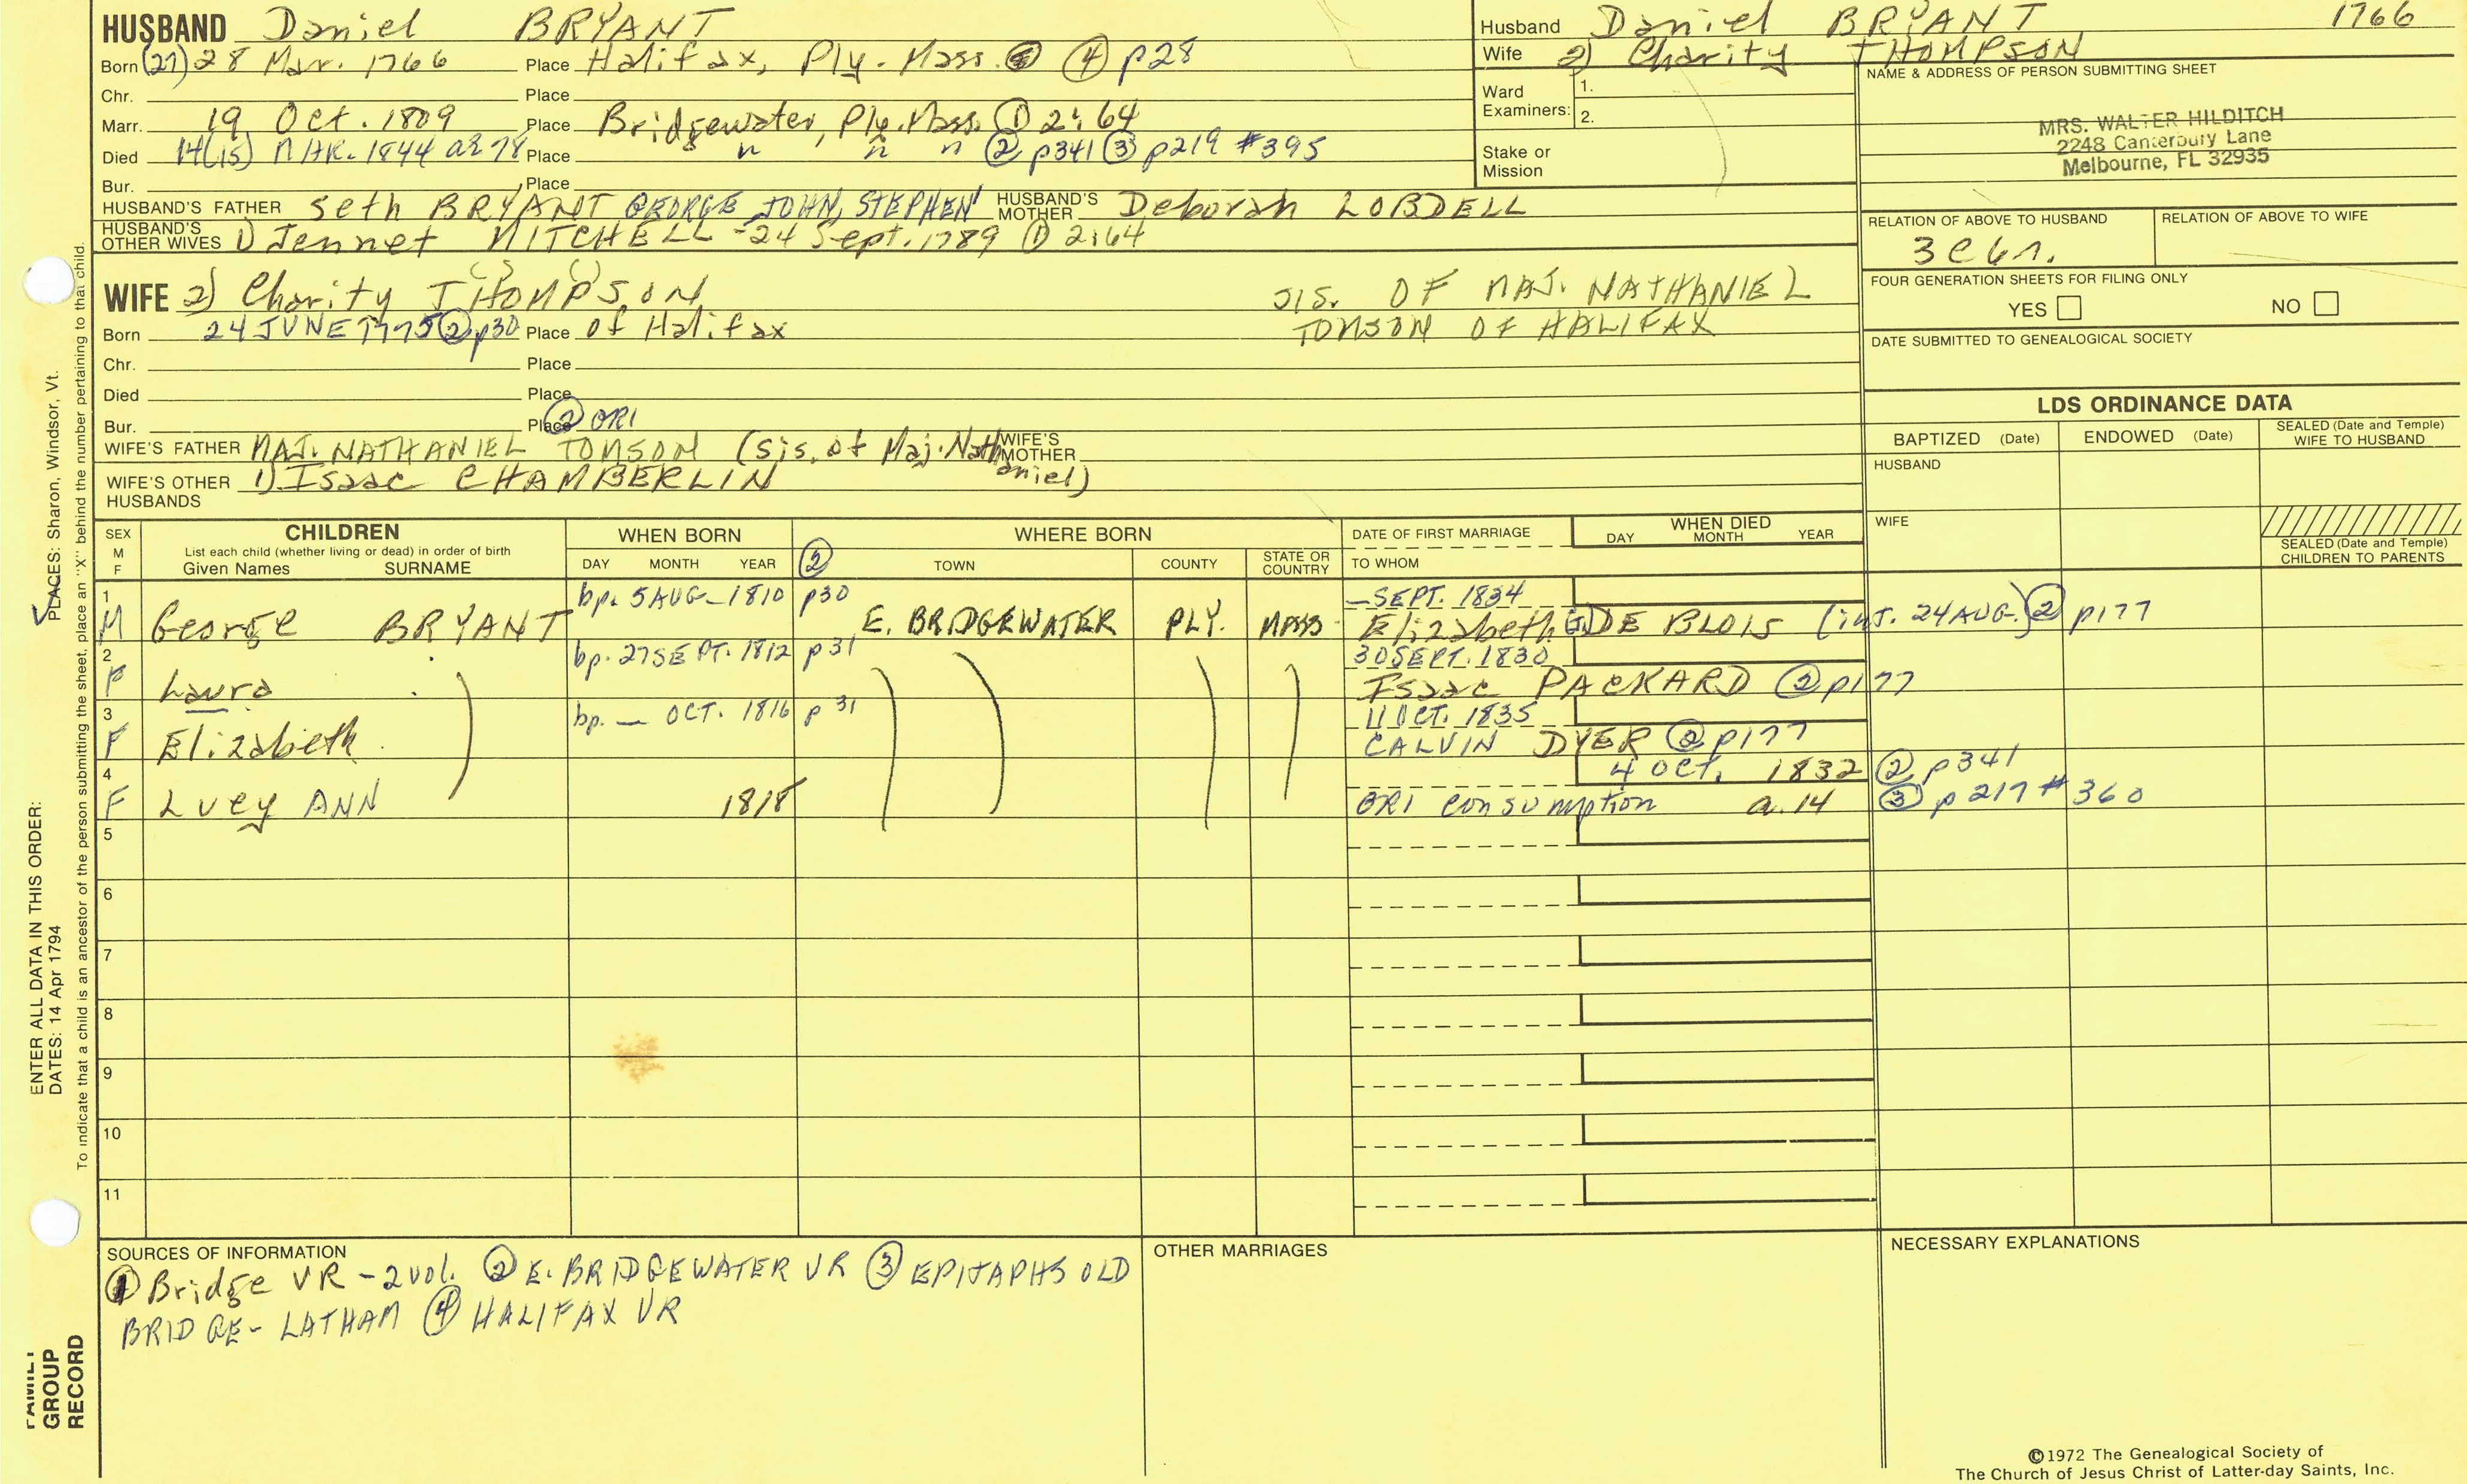 HUSBAND Daniel BRYANT
Born (27) 28 Mar. 1766 Place Halifax, Ply. Mass. ④ p28
Chr. Place
Marr. 19 Oct. 1809 Place Bridgewater, Ply. Mass. ① 2:64
Died 14(15) MAR. 1844 ae 78 Place " " " ② p341 ③ p219 #395
Bur. Place
HUSBAND'S FATHER Seth BRYANT GEORGE, JOHN, STEPHEN HUSBAND'S MOTHER Deborah LOBDELL
HUSBAND'S OTHER WIVES 1) Jennet MITCHELL - 24 Sept. 1789 ① 2:64
WIFE 2) Charity THOMPSON
SIS. OF MAJ. NATHANIEL
TOMSON OF HALIFAX
Born 24 JUNE 1775 ② p30 Place of Halifax
Chr. Place
Died Place
Bur. Place
② GR1
WIFE'S FATHER MAJ. NATHANIEL TOMSON (sis. of Maj. Nathaniel) WIFE'S MOTHER
WIFE'S OTHER HUSBANDS 1) Isaac CHAMBERLIN
Husband Daniel BRYANT 1766
Wife 2) Charity THOMPSON
Ward Examiners: 1.
2.
Stake or Mission
NAME & ADDRESS OF PERSON SUBMITTING SHEET
MRS. WALTER HILDITCH
2248 Canterbury Lane
Melbourne, FL 32935
RELATION OF ABOVE TO HUSBAND RELATION OF ABOVE TO WIFE
3c6r.
FOUR GENERATION SHEETS FOR FILING ONLY
YES NO
DATE SUBMITTED TO GENEALOGICAL SOCIETY
LDS ORDINANCE DATA
BAPTIZED (Date) ENDOWED (Date) SEALED (Date and Temple) WIFE TO HUSBAND
HUSBAND
WIFE
SEALED (Date and Temple) CHILDREN TO PARENTS
SEX M F CHILDREN WHEN BORN WHERE BORN DATE OF FIRST MARRIAGE WHEN DIED
List each child (whether living or dead) in order of birth
Given Names SURNAME DAY MONTH YEAR ② TOWN COUNTY STATE OR COUNTRY TO WHOM DAY MONTH YEAR
1 bp. 5 AUG 1810 p30 — SEPT. 1834
M George BRYANT E. BRIDGEWATER PLY. MASS Elizabeth G. DE BLOIS (int. 24 AUG.) ② p177
2 bp. 27 SEPT. 1812 p31 30 SEPT. 1830
F Laura Isaac PACKARD ② p177
3 bp. — OCT. 1816 p31 11 OCT. 1835
F Elizabeth CALVIN DYER ② p177
4 4 OCT. 1832 ② p341
F Lucy ANN 1818 GR1 consumption a. 14 ③ p217 #360
5
6
7
8
9
10
11
SOURCES OF INFORMATION
① Bridge VR - 2 vol. ② E. BRIDGEWATER VR ③ EPITAPHS OLD
BRIDGE - LATHAM ④ HALIFAX VR
OTHER MARRIAGES
NECESSARY EXPLANATIONS
©1972 The Genealogical Society of
The Church of Jesus Christ of Latter-day Saints, Inc.
ENTER ALL DATA IN THIS ORDER:
DATES: 14 Apr 1794
PLACES: Sharon, Windsor, Vt.
To indicate that a child is an ancestor of the person submitting the sheet, place an "X" behind the number pertaining to that child.
FAMILY
GROUP
RECORD